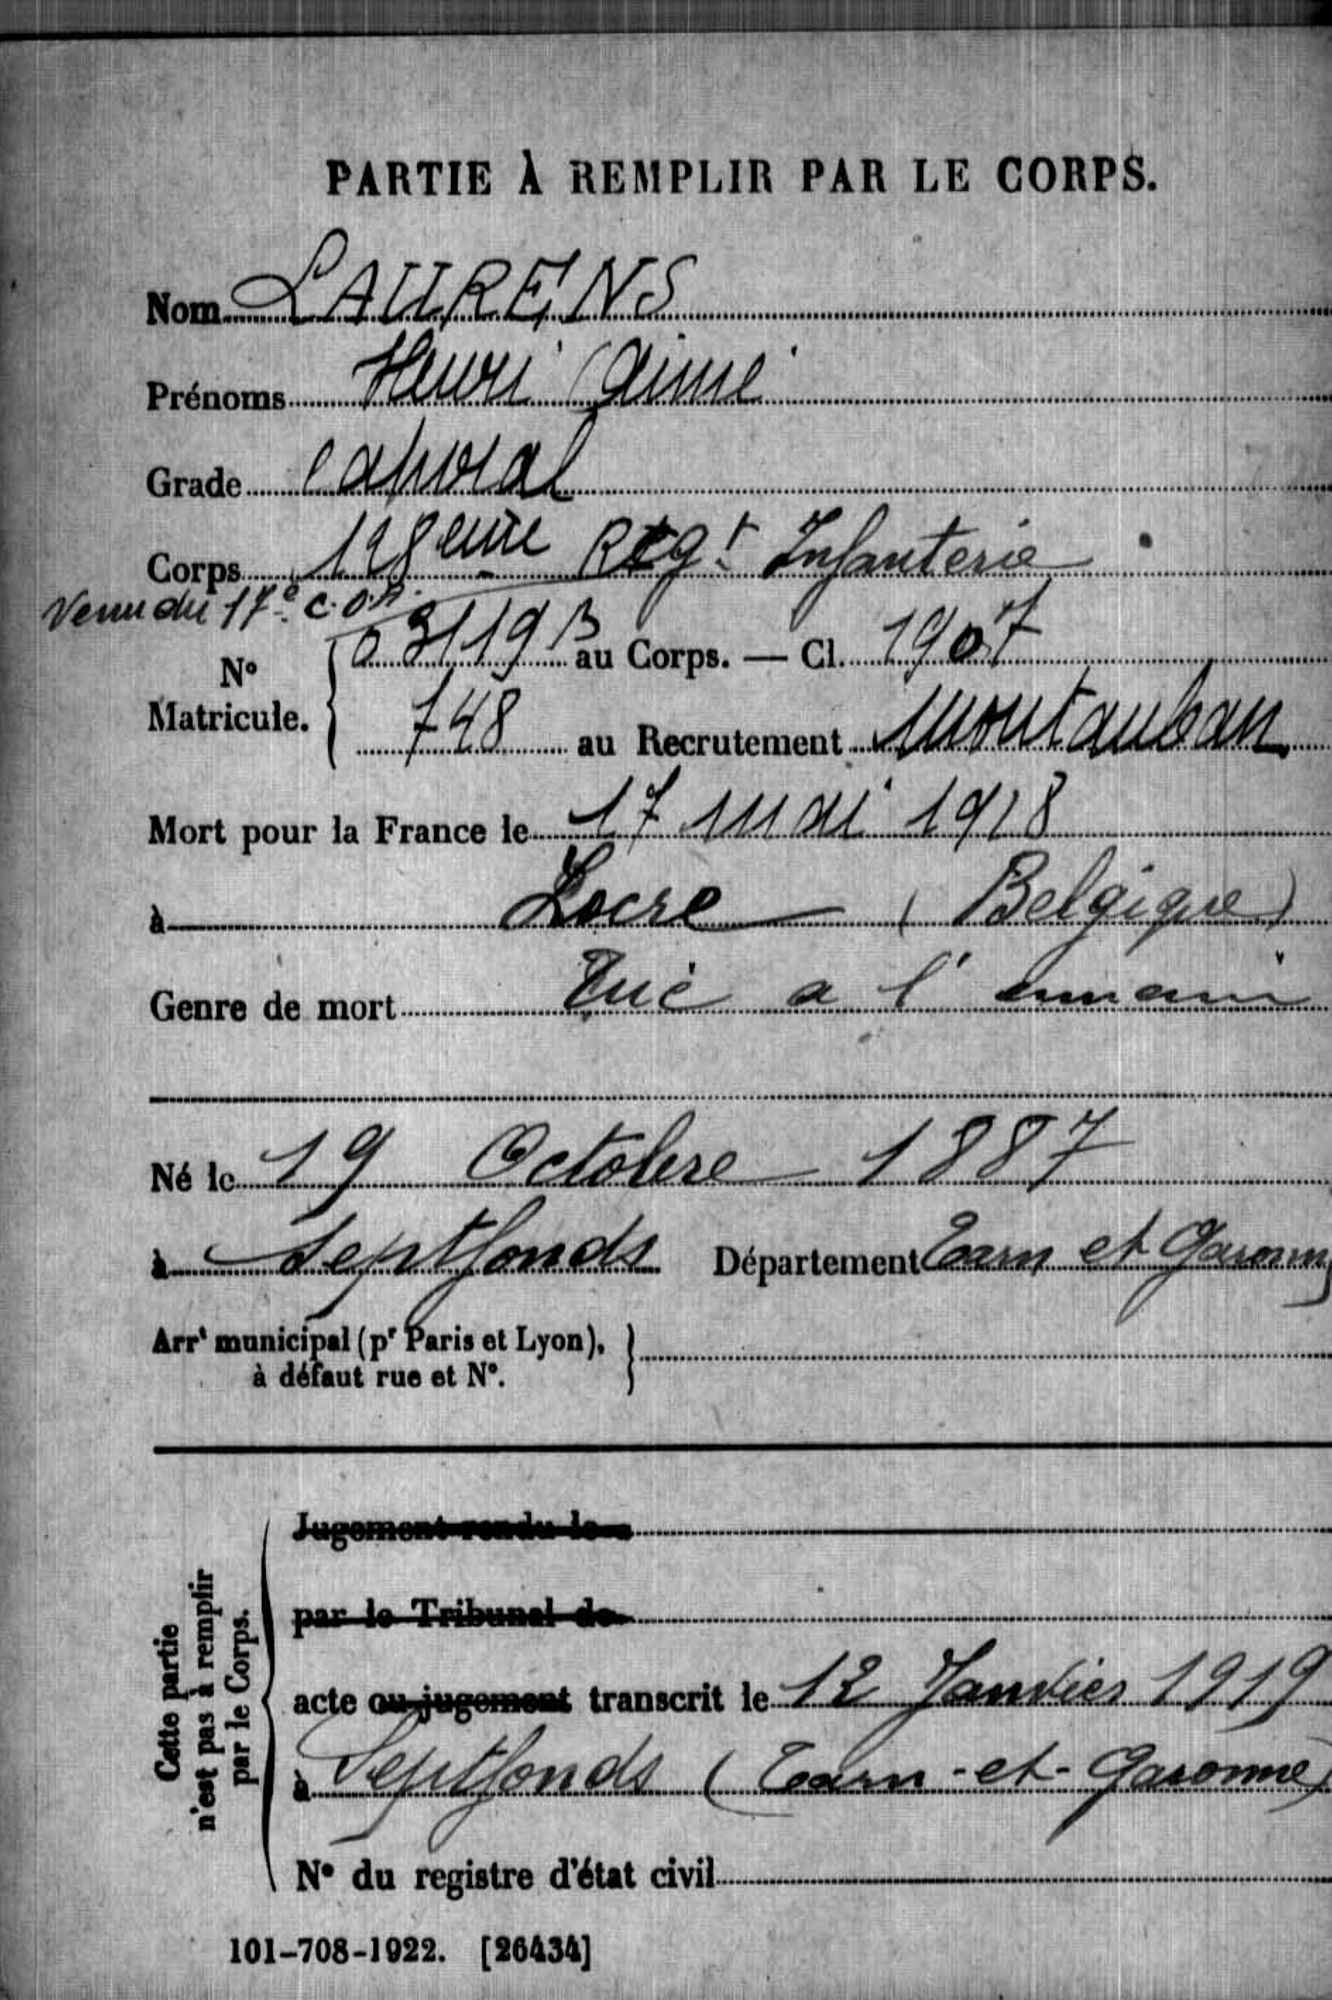 PARTIE À REMPLIR PAR LE CORPS.
Nom LAURENS
Prénoms Henri Aimé
Grade Caporal
Corps 128eme Regt Infanterie
Venu du 17e C.O.A.
N° Matricule. 03119 au Corps. — Cl. 1907
748 au Recrutement Montauban
Mort pour la France le 17 mai 1918
à Locre (Belgique)
Genre de mort Tué a l'ennemi
Né le 19 Octobre 1887
à Septfonds Département Tarn et Garonne
Arrt municipal (pr Paris et Lyon),
à défaut rue et N°.
Cette partie
n'est pas à remplir
par le Corps.
Jugement rendu le
par le Tribunal de
acte ou jugement transcrit le 12 Janvier 1919
à Septfonds (Tarn-et-Garonne)
N° du registre d'état civil
101-708-1922. [26434]